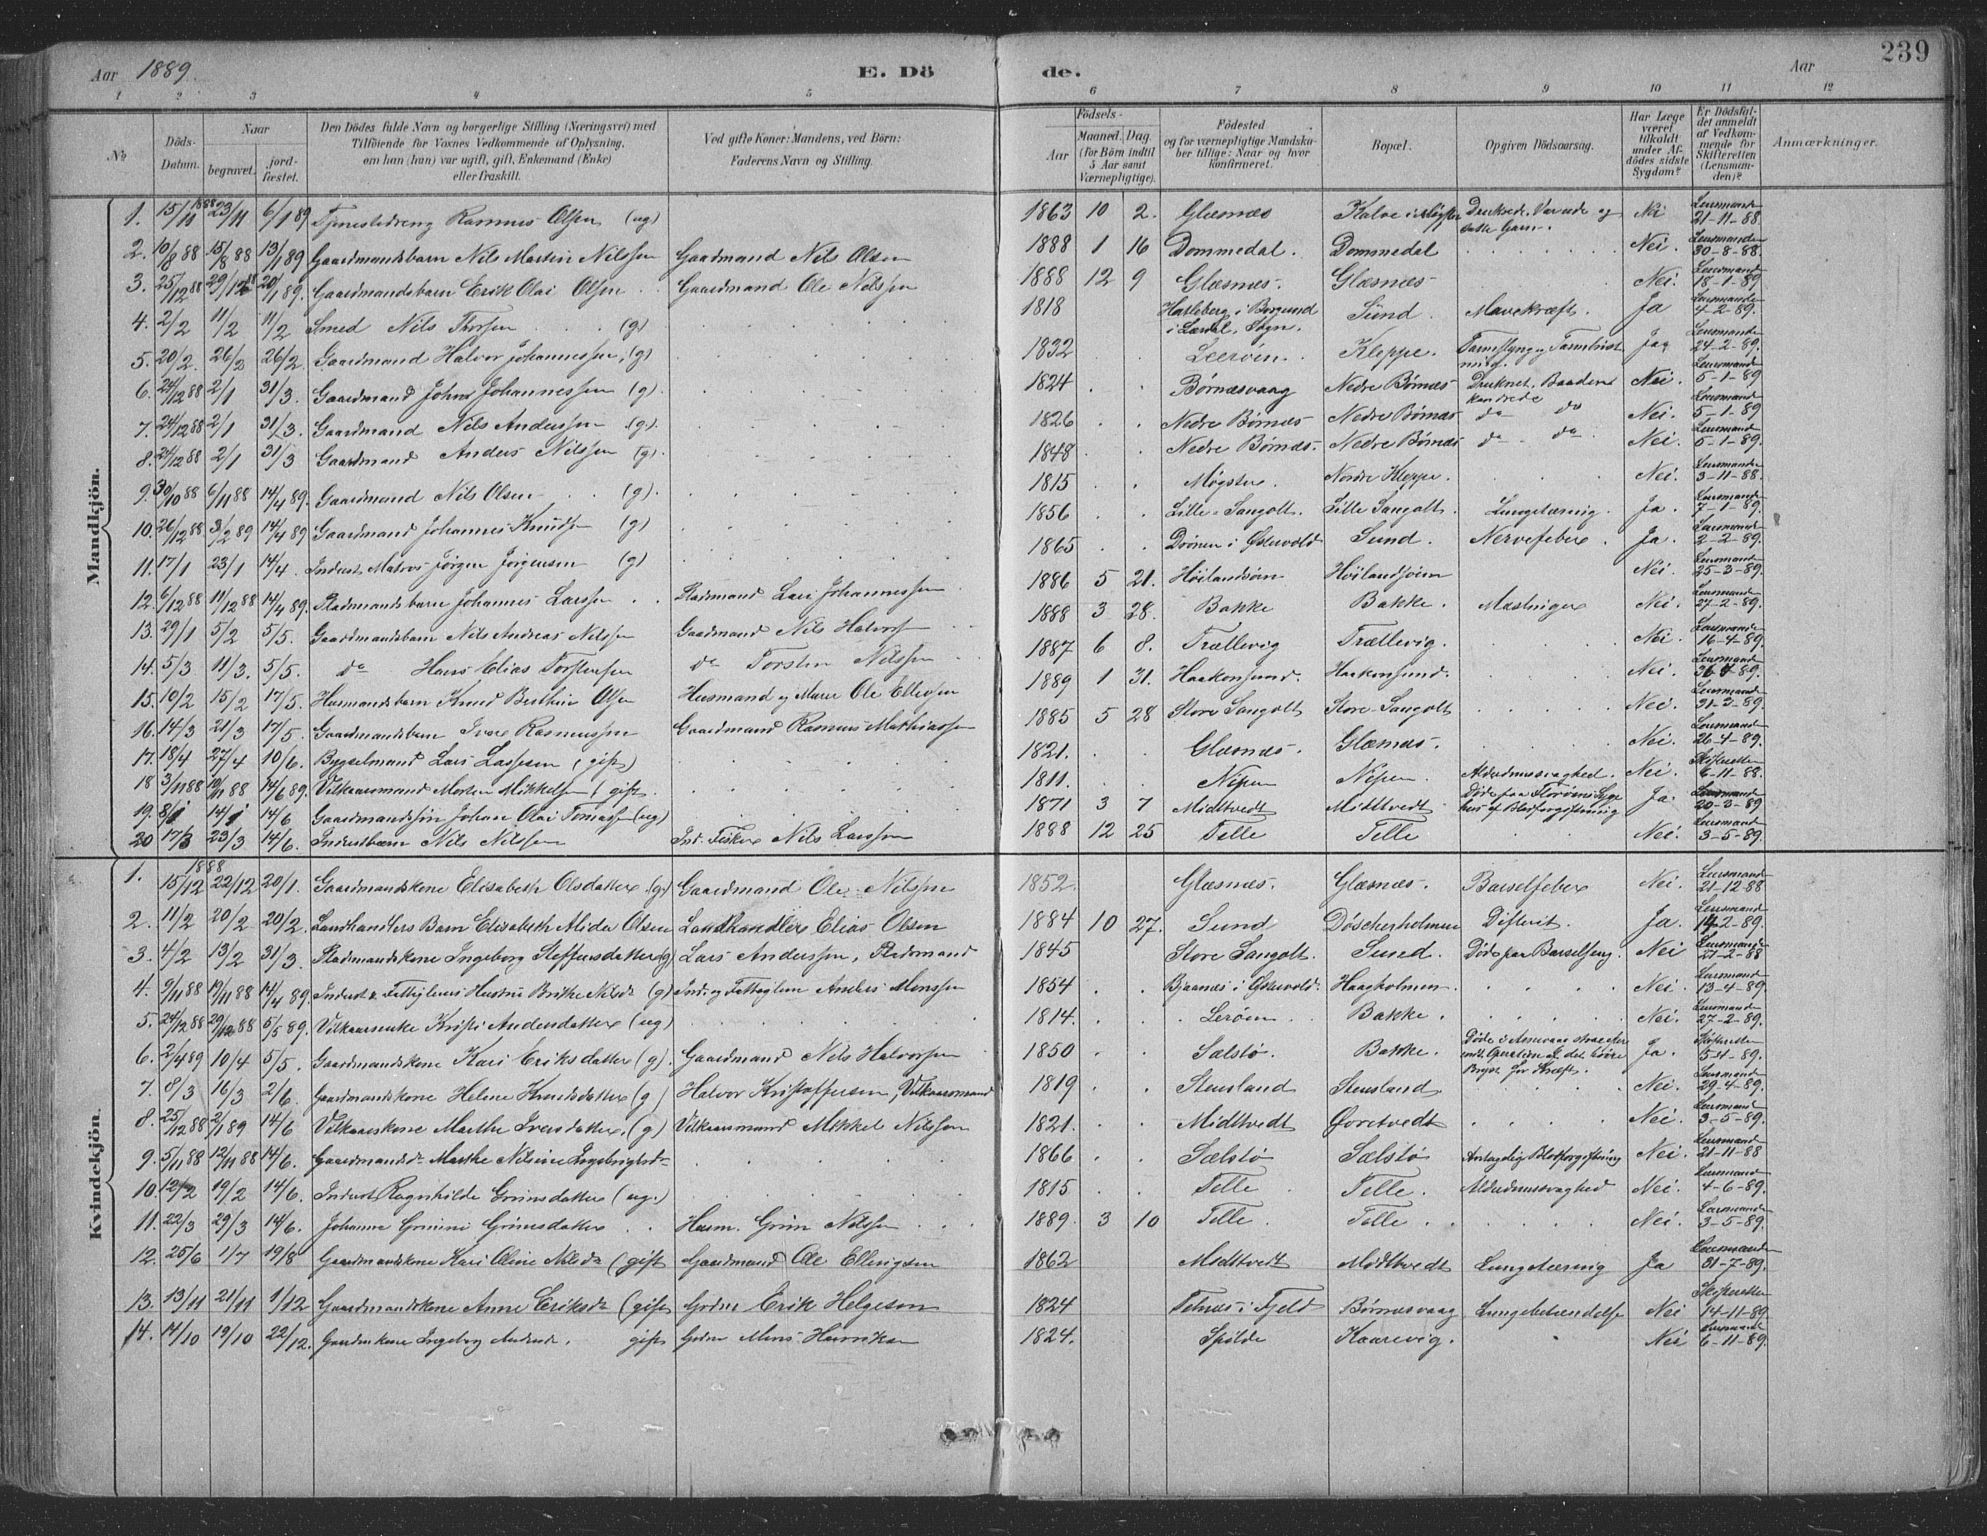 Aar 1889. E. Dö de. Aar 239
1 2 3 4 5 6 7 8 9 10 11 12
No Döds-Datum. Naar begravet. jordfæstet. Den Dödes fulde Navn og borgerlige Stilling (Næringsvei) med Tilföiende for Voxnes Vedkommende af Oplysning, om han (hun) var ugift, gift, Enkemand (Enke) eller fraskilt. Ved gifte Koner: Mandens, ved Börn: Faderens Navn og Stilling. Födsels- Aar Maaned. Dag. (for Börn indtil 5 Aar samt Værnepligtige). Födested og for værnepligtige Mandskaber tillige: Naar og hvor konfirmeret. Bopæl. Opgiven Dödsaarsag. Har Læge været tilkaldt under Afdödes sidste Sygdom? Er Dödsfaldet anmeldt af Vedkommende for Skifteretten (Lensmanden)? Anmærkninger.
Mandkjön.
1. 15/11 1888 23/11 6/1 89 Tjenestedreng Rasmus Olsen (ug) 1863 10 2. Glæsnæs Nei Lensmand 21-11-88
2. 10/8 88 15/8 88 13/1 89 Gaardmandsbarn Nils Martin Nilssen Gaardmand Nils Olsen 1888 1 16 Dommedal. Dommedal Nei. Lensmanden 30-8-88.
3. 25/12 88 29/12 88 20/1 89. Gaardmandsbarn Erik Olai Olsen Gaardmand Ole Nilssen 1888 12 9 Glæsnæs Glæsnæs Nei. Lensmand 18-1-89.
4. 2/2 11/2 11/2 Smed Nils Thorsen (g) 1818 Hatleberg i Borgund i Lærdal, Sogn. Sund. Mavekræft. Ja Lensmande 4-2-89.
5. 20/2. 26/2 26/2. Gaardmand Halvor Johannessen (g) 1832 Leerøen. Kleppe. Ja Lensmande 24-2-89.
6. 24/12 88 2/1 31/3. Gaardmand Johns Johannessen (g) 1824 Børnæsvaag Nedre Børnæs Druknet. Baaden kandrede Nei. Lensmand 5-1-89
7. 24/12 88 2/1 31/3. Gaardmand Nils Anderssen (g) 1826 Nedre Børnæs Nedre Børnæs do do Nei. Lensmand 5-1-89.
8. 24/12 88 2/1 31/3 Gaardmand Anders Nilssen (g) 1848 Nedre Børnæs. Nedre Børnæs do do Nei. Lensmand 5-1-89.
9. 30/10 88 6/11 88 14/4 89. Gaardmand Nils Olsen (g) 1815 Møgster. Nordre Kleppe. Nei. Lensmande 3-11-88.
10. 26/12 88 3/2 89 14/4 89 Gaardmand Johannes Knuds (g) 1856 Lille-Sangolt. Lille Sangolt. Lungetæring. Ja. Lensmand 7-1-89.
11. 17/1 23/1 14/4. Inderst Matros Jørgen Jørgensen (g) 1865 Drönen i Østervold Sund. Nervefeber. Ja. Lensmand 2-2-89.
12. 6/12 88 11/12 88 14/4 89. Pladsmandsbarn Johannes Larssen Pladsmand Lars Johannessen 1886 5 21. Høilandsøen Høilandsøen Nei. Lensmand 25-3-89.
13. 29/1 5/2 5/5. Gaardmandsbarn Nils Andreas Nilssen Gaardmand Nils Halvors 1888 3 28. Bakke Bakke. Mæslinger Nei. Lensmand 27-2-89.
14. 5/3 11/3. 5/5. do Hans Elias Torstensen do Torsten Nilssen 1887 6 8. Trællevig Trællevig. Nei. Lensmande 16-4-89.
15. 10/2 15/2 17/5. Husmandsbarn Knud Bertin Olsen Husmand og Murer Ole Ellefsen 1889 1 31. Haakonsund. Haakonsund. Nei.
16. 14/3 21/3 17/5. Gaardmandsbarn Ivar Rasmussen Gaardmand Rasmus Mathiassen 1885 5 28 Store Sangolt Store-Sangolt Nei. Lensmand 31-3-89.
17. 18/4 27/4 10/6. Bygselmand Lars Lassesen (gift) 1821. Glæsnæs. Glæsnæs. Nei. Lensmand 26-4-89.
18 3/11 88 10/11 88 14/6 89. Vilkaarsmand Morten Mikkelsen (gift) 1811. Nipen Nipen. Alderdomssvaghed. Nei. Skifteretten 6-11-88.
19. 14/6 Gaardmandssön Johan Olai Tomass (ug) 1871 3 7 Midttvedt Midttvedt Døde paa Storøens Sygehus af Blodforgiftning Ja. Lensmand 20-3-89
20 17/3 23/3 14/6. Inderstbarn Nils Nilssen Ind. Fisker Nils Larssen 1888 12 25 Telle Telle Nei. Lensmand 3-5-89.
Kvindekjön.
1. 1888 15/12 22/12 20/1. Gaardmandskone Elisabeth Olsdatter (g) Gaardmand Ole Nilssen 1852. Glæsnæs. Glæsnæs. Barselfeber Nei. Lensmand 21-12-88
2. 11/2 20/2 20/2. Landhandlers Barn Elisabeth Alida Olsen Landhandler Elias Olsen 1884 10 27. Sund Döskerholmen Difterit. Ja. Lensmand
3. 4/2 13/2 31/3. Pladsmandskone Ingeborg Steffensdatter (g) Lars Anderssen, Pladsmand 1845 Store Sangolt. Sund. Døde paa Barselseng. Nei Lensmande 21-2-88
4. 9/11 88 19/11 88 14/4 89. Inderst & Fattiglems Hustru Brithe Nilsd. (g) Ind. og Fattiglem Anders Monssen 1854 Bjaanæs i Østervold. Haagholmen. Nei. Lensmand 13-4-89.
5. 24/12 88 29/12 88 5/5 89. Vilkaarsenke Kristi Andersdatter (ug) 1814. Lerøen. Bakke. Nei. Lensmand 27-2-89.
6. 2/4 89 10/4 5/5. Gaardmandskone Kari Eriksdatter (g). Gaardmand Nils Halvorssen 1850 Sælstø. Bakke. Ja. Skifteretten
7. 8/3 16/3 2/6. Gaardmandskone Helene Knudsdatter (g) Halvor Kristoffersen, Vilkaarsmand 1819 Stensland Stensland Nei. Lensmand 29-4-89.
8. 25/12 88 2/1 89 14/6 Vilkaarskone Marthe Iversdatter. (g) Vilkaarsmand Mikkel Nilssen 1821. Midttvedt Øvretvedt Nei. Lensmand 3-5-89.
9. 5/11 88 12/11 88 14/6. Gaardmandsd. Marthe Nilsine Ingebrigtsd. 1866 Sælstø Sælstø Antagelig Blodforgiftning Nei. Lensmand 21-11-88
10. 12/2 19/2 14/6. Inderst Ragnhilde Grimsdatter (ug.) 1815 Telle Telle. Alderdomssvaghed Nei. Lensmand 4-6-89.
11. 22/3 29/3 14/6. Johanne Grimine Grimsdatter Husm. Grim Nilsen 1889. 3 10 Telle. Telle. Nei. Lensmand 3-5-89.
12. 25/6 1/7 19/8 Gaardmandskone Kari Oline Nilsd. (gift) Gaardmand Ole Ellingsen 1862 Midttvedt Midttvedt Lungetæring Ja Lensmanden 31-7-89.
13. 13/11 21/11 1/12 Gaardmandskone Anne Eriksd. (gift) Grdm. Erik Helgesen 1824 Telnæs i Fjeld Børnæsvaag Lungebetændelse Nei Skifteretten 14-11-89.
14. 14/10 19/10 22/12. Gaardmskone Ingeborg Andersd. gift Grdm Mons Henriksen 1824. Spilde Kaarevig. Nei Lensmand 6-11-89.